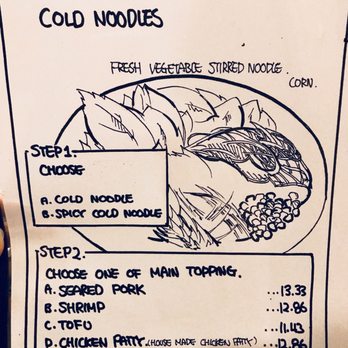 COLD NOODLES
FRESH VEGETABLE STIRRED NOODLE.
CORN.
STEP 1.
CHOOSE
A. COLD NOODLE
B. SPICY COLD NOODLE
STEP 2.
CHOOSE ONE OF MAIN TOPPING.
A. SEARED PORK ...13.33
B. SHRIMP ...12.86
C. TOFU ...11.43
D. CHICKEN PATTY (HOUSE MADE CHICKEN PATTY) ...12.86